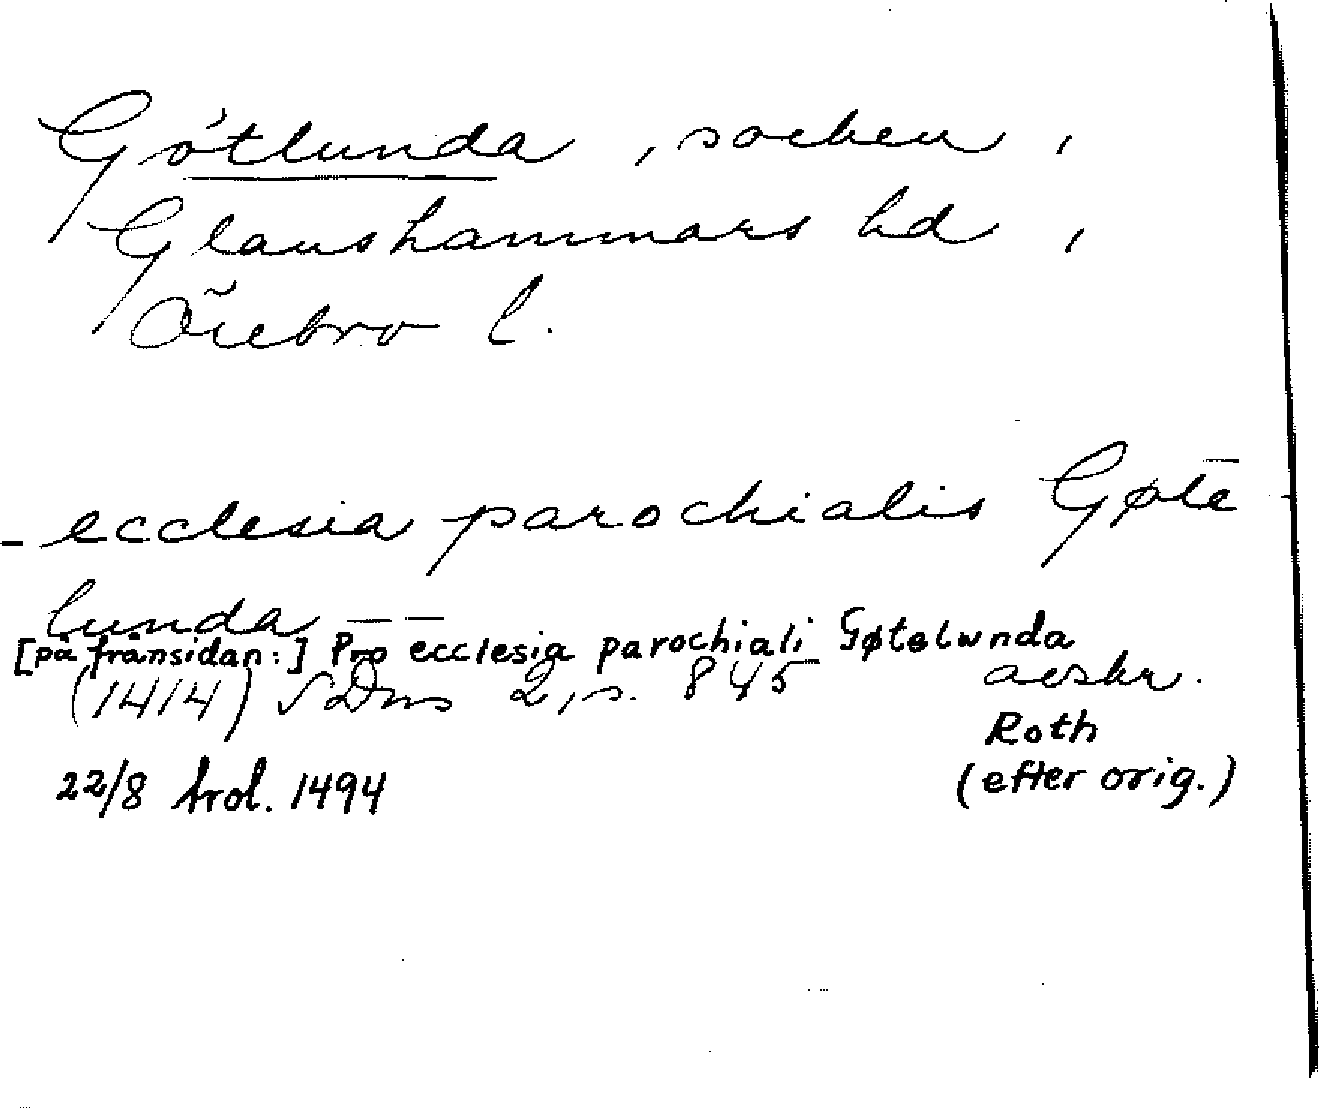 Götlunda, socken,
Glanshammars hd,
Örebro l.
- ecclesia parochialis Gøte-
lunda — —
[på frånsidan:] Pro ecclesia parochiali Gøtolwnda
(1414) SDns 2, s. 845 avskr.
Roth
22/8 krol. 1494 (efter orig.)